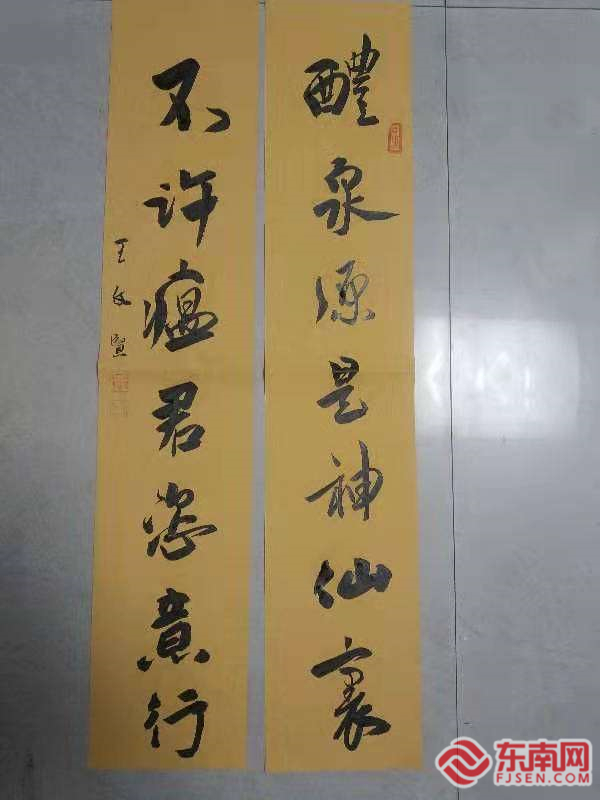 醴泉源是神仙裏
不许瘟君恣意行
王文贤
东南网
FJSEN.COM